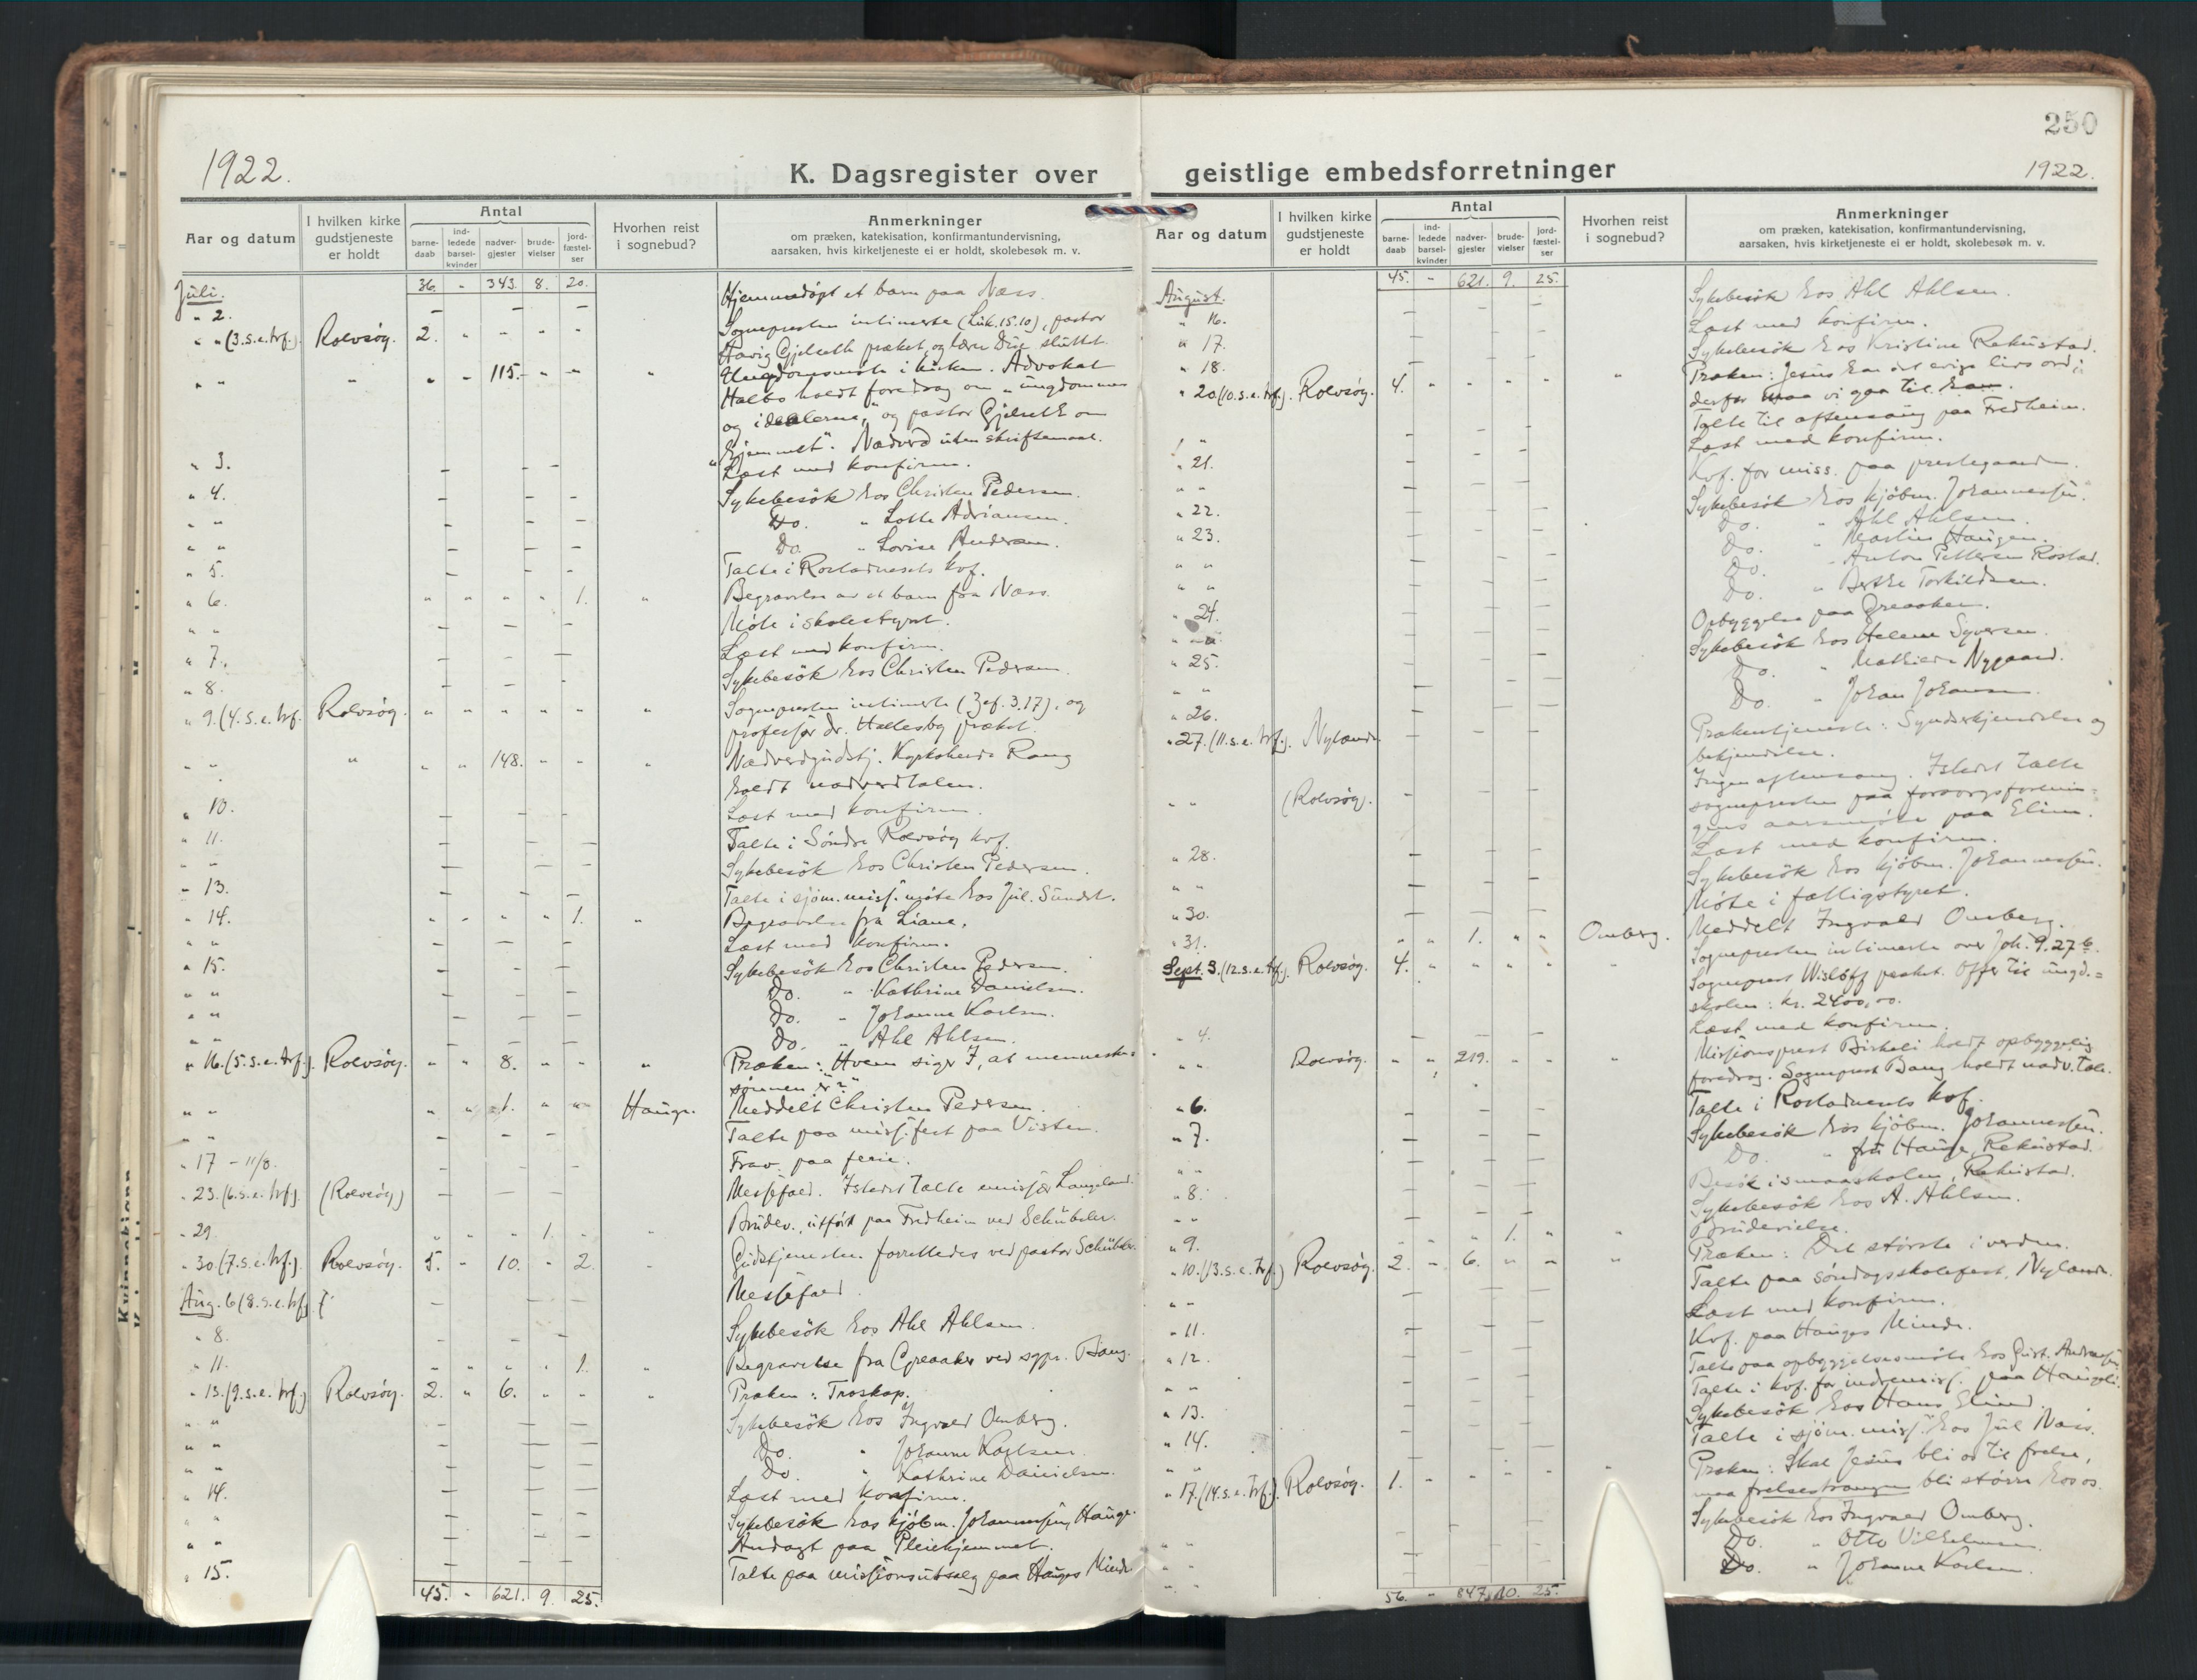 1922.
K. Dagsregister over
Aar og datum
I hvilken kirke gudstjeneste er holdt
Antal
barnedaab
indledede barselkvinder
nadvergjester
brudevielser
jordfæstelser
Hvorhen reist i sognebud?
Anmerkninger
om præken, katekisation, konfirmantundervisning,
aarsaken, hvis kirketjeneste ei er holdt, skolebesøk m. v.
36. - 343. 8. 20.
Juli.
" 2. Hjemmedøpt et barn paa Næs.
" " (3.s.e.trf.) Rolvsøy. 2. " " " " Sognepresten intimerte (Luk. 15.10), pastor
Gjelseth præket, og lærer Due sluttet.
" " " " " 115. " " " Ungdomsmøte i kirken. Advokat
holdt foredrag om "ungdommen
og idealerne", og pastor Gjelseth om
"hjemmet". Nadverd uten skriftemaal.
" 3. Læst med konfirm.
" 4. Sykebesök hos Christen Pedersen.
" " Do. " Lotte Adriansen.
" " Do. " Lovise Andersen.
" 5. Talte i Rostadnesets kvf.
" 6. " " " " 1. " Begravelse av et barn fra Næss.
" " Möte i skolestyret.
" 7. Læst med konfirm.
" 8. Sykebesök hos Christen Pedersen.
" 9. (4.s.e.trf. Rolvsøy. " " " " " " Sognepresten intimerte (Zef. 3.17), og
professor dr. Hallesby præket.
" " " " " 148. " " " Nadverdgudstj. Kapellan Rang
holdt nadverdtalen.
" 10. Læst med konfirm.
" 11. Talte i Söndre Rolvsøy kvf.
" " Sykebesök hos Christen Pedersen.
" 13. Talte i sjöm. miss. möte hos Jul. Sundet.
" 14. " " " " 1. " Begravelse fra Liane.
" " Læst med konfirm.
" 15. Sykebesök hos Christen Pedersen.
" " Do. " Kathrine Danielsen.
" " Do. " Johanne Karlsen.
" " Do. " Ahl Ahlsen.
" 16. (5.s.e.trf.). Rolvsøy. " " 8. " " " Præken: Hvem siger I, at menneske-
sønnen er?"
" " " " 1. " " Hauge. Meddelt Christen Pedersen.
" " Talte paa miss. fest paa Visten.
" 17 - 11/8. Frav. paa ferie.
" 23. (6.s.e.trf.). (Rolvsøy) Messefald. Istedet talte emissær Langeland.
" 29. " " " 1. " " Brudev., utfört paa Fredheim ved Schübeler.
" 30. (7.s.e.trf.). Rolvsøy. 5. " 10. " 2. " Gudstjenesten forrettedes ved pastor Schübeler.
Aug. 6 (8.s.e.trf.) Messefald.
" 8. Sykebesök hos Ahl Ahlsen.
" 11. " " " " 1. " Begravelse fra Greaaker ved sgpr. Bang.
" 13. (9.s.e.trf.) Rolvsøy. 2. " 6. " " " Præken: Troskap.
" " Sykebesök hos Ingvald Omberg.
" " Do. " Johanne Karlsen.
" " Do. " Kathrine Danielsen.
" 14. Læst med konfirm.
" " Sykebesök hos kjöbm. Johannessen, Hauge.
" " Andagt paa Pleiehjemmet.
" 15. Talte paa missionsutsalg paa Hauges Minde
45. - 621. 9. 25.
250
1922.
geistlige embedsforretninger
Aar og datum
I hvilken kirke gudstjeneste er holdt
Antal
barnedaab
indledede barselkvinder
nadvergjester
brudevielser
jordfæstelser
Hvorhen reist i sognebud?
Anmerkninger
om præken, katekisation, konfirmantundervisning,
aarsaken, hvis kirketjeneste ei er holdt, skolebesøk m. v.
45. - 621. 9. 25.
August.
" 16. Sykebesök hos Ahl Ahlsen.
" 17. Læst med konfirm.
" 18. Sykebesök hos Kristine Rekustad.
" 20. (10.s.e.trf.). Rolvsøy. 4. " " " " " Præken: Jesus har det evige livs ord;
derfor maa vi gaa til ham.
" " Talte til aftensang paa Fredheim.
" 21. Læst med konfirm.
" " Kvf. for miss. paa prestegaarden.
" 22. Sykebesök hos kjöbm. Johannessen.
" 23. Do. " Ahl Ahlsen.
" " Do. " Martin Haugen.
" " Do. " Anton Pettersen Rostad.
" 24. Do. " Berthe Torkildsen.
" " Opbyggelse paa Greaaker.
" 25. Sykebesök hos Helene Syversen.
" " Do. " Mathilde Nygaard.
" 26. Do. " Johan Johansen.
" 27. (11.s.e.trf.). Nylande. Prækentjeneste: Synderkjendelse og
bekjendelse.
" " (Rolvsøy). Ingen aftensang. Istedet talte
sognepresten paa forsorgsforenin-
gens aarsmöte paa Elim.
" 28. Læst med konfirm.
" " Sykebesök hos kjöbm. Johannessen.
" 30. Möte i fattigstyret.
" 31. " " 1. " " Omberg. Meddelt Ingvald Omberg.
Sept. 3. (12.s.e.trf.). Rolvsøy. 4. " " " " " Sognepresten intimerte over Joh. 9.27 b.
Sogneprest Wislöff præket. Offer til ungd.=
skolen: kr. 2400,00.
" 4. Læst med konfirm.
" " Rolvsøy. " " 219. " " " Missionsprest Birkeli holdt opbyggelig
foredrag. Sogneprest Bang holdt nadv. tale.
" 6. Talte i Rostadnesets kvf.
" 7. Sykebesök hos kjöbm. Johannessen.
" " Do. " fru Hauge, Rekustad.
" 8. Besök i smaaskolen, Rekustad.
" " Sykebesök hos A. Ahlsen.
" 9. " " " 1. " " Brudevielse.
" 10. (13.s.e.trf.) Rolvsøy. 2. " 6. " " " Præken: Det störste i verden.
" " Talte paa söndagsskolefest, Nylande.
" 11. Læst med konfirm.
" 12. Kvf. paa Hauges Minde.
" " Talte paa opbyggelsesmöte hos Gust. Andreassen.
" 13. Talte i kvf. for indremiss. paa Haugeli.
" 14. Sykebesök hos Hans Elind.
" " Talte i sjöm. miss. hos Jul Næss.
" 17. (14.s.e.trf.). Rolvsøy. 1. " " " " " Præken: Skal Jesus bli os til frelse,
maa frelsestrangen bli större hos os.
" " Sykebesök hos Ingvald Omberg.
" " Do. " Otto Vilhelmsen.
" " Do. " Johanne Karlsen.
56. - 847. 10. 25.